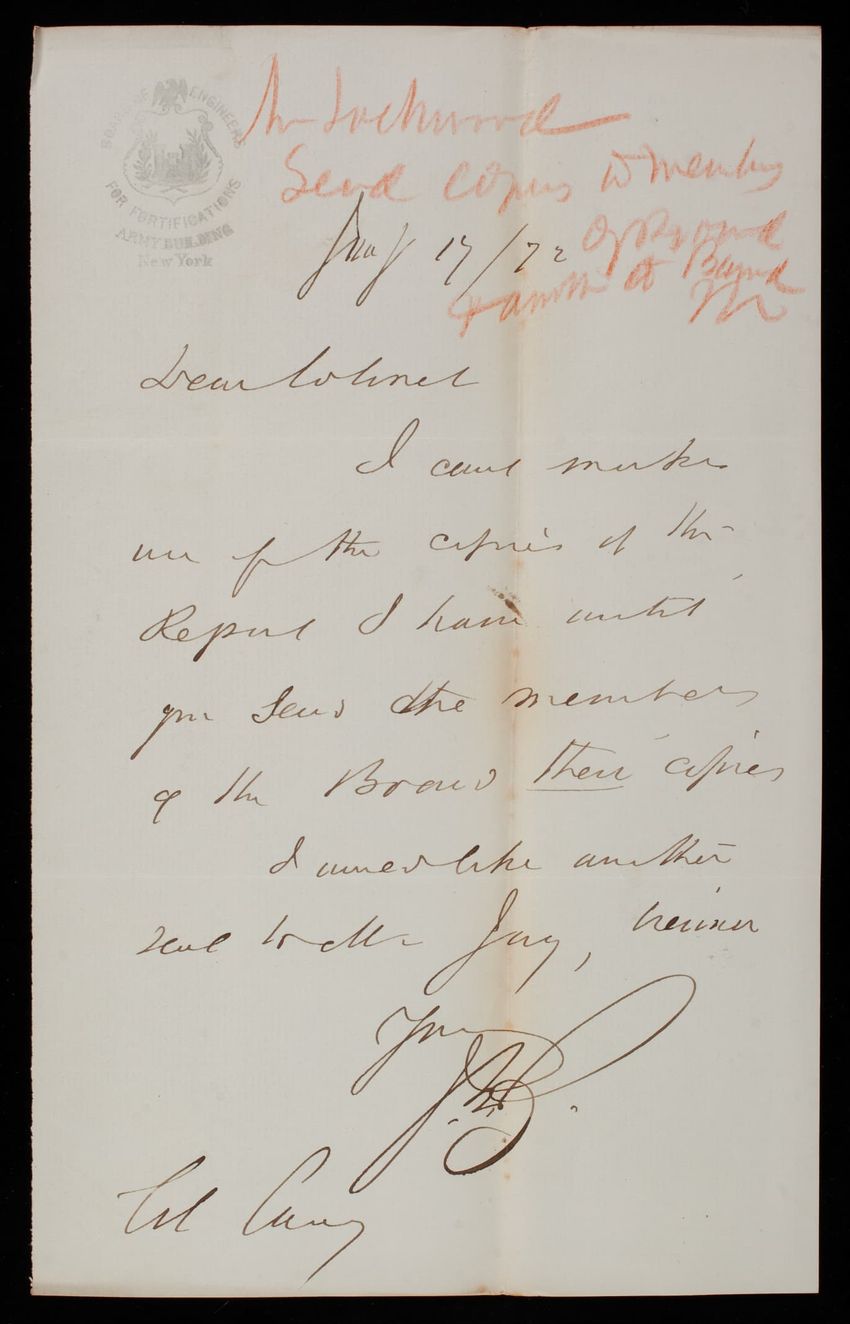 BOARD OF ENGINEERS
FOR FORTIFICATIONS
ARMY BUILDING
New York
Mr Lockwood
Send copies to members
of Board
& another to Board
17/72
Dear Colonel
I cant make
use of the copies of the
Report I have until
you send the members
of the Board their copies
I would like another
sent to Mr Jay,
Yours
J.G.B.
Col Casey